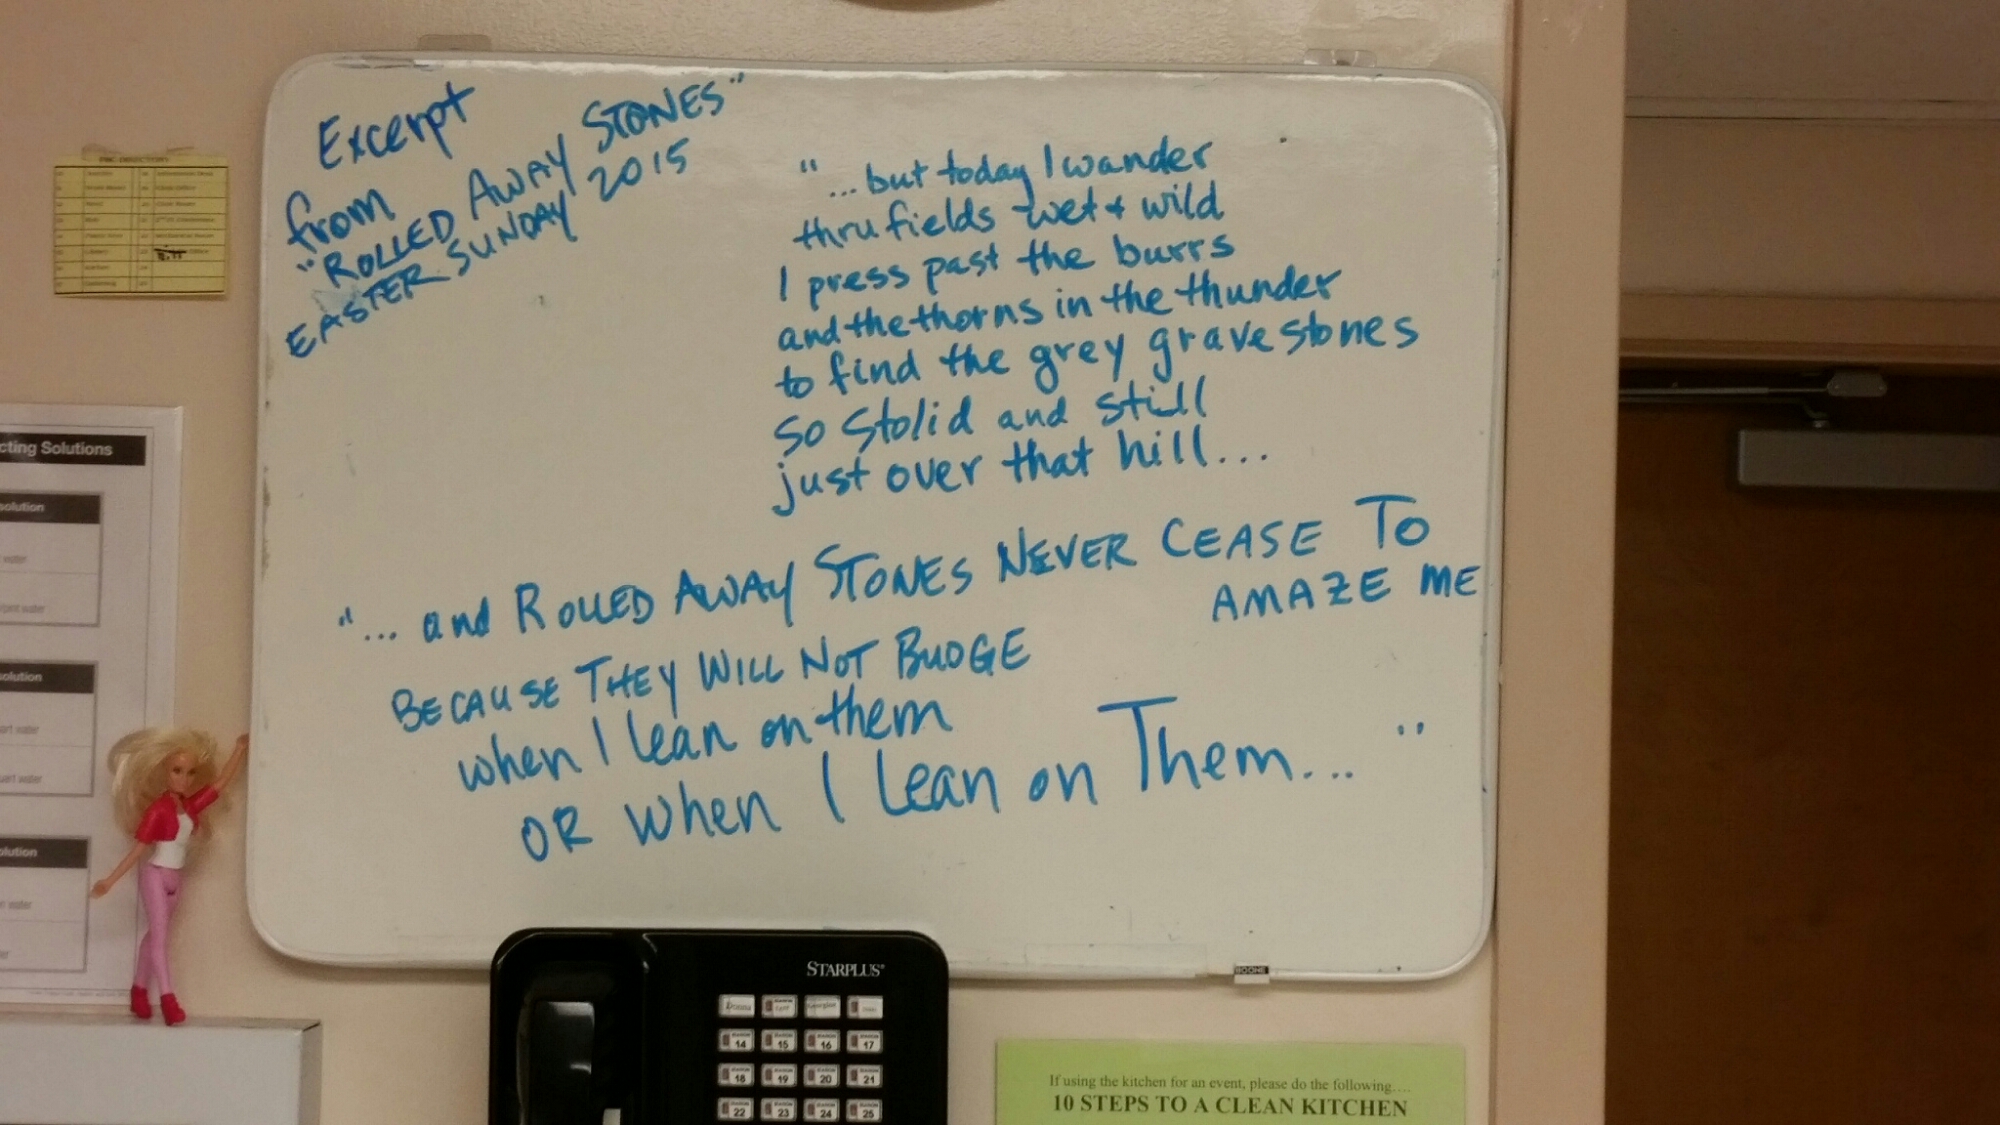 Excerpt
from
"ROLLED AWAY STONES"
EASTER SUNDAY 2015
"... but today I wander
thru fields wet + wild
I press past the burrs
and the thorns in the thunder
to find the grey gravestones
so stolid and still
just over that hill...
"... and ROLLED AWAY STONES NEVER CEASE TO
AMAZE ME
BECAUSE THEY WILL NOT BUDGE
when I lean on them
OR when I lean on Them... "
cting Solutions
solution
water
solution
water
olution
water
BOONE
STARPLUS
Donna
14 15 16 17
18 19 20 21
22 23 24 25
If using the kitchen for an event, please do the following....
10 STEPS TO A CLEAN KITCHEN